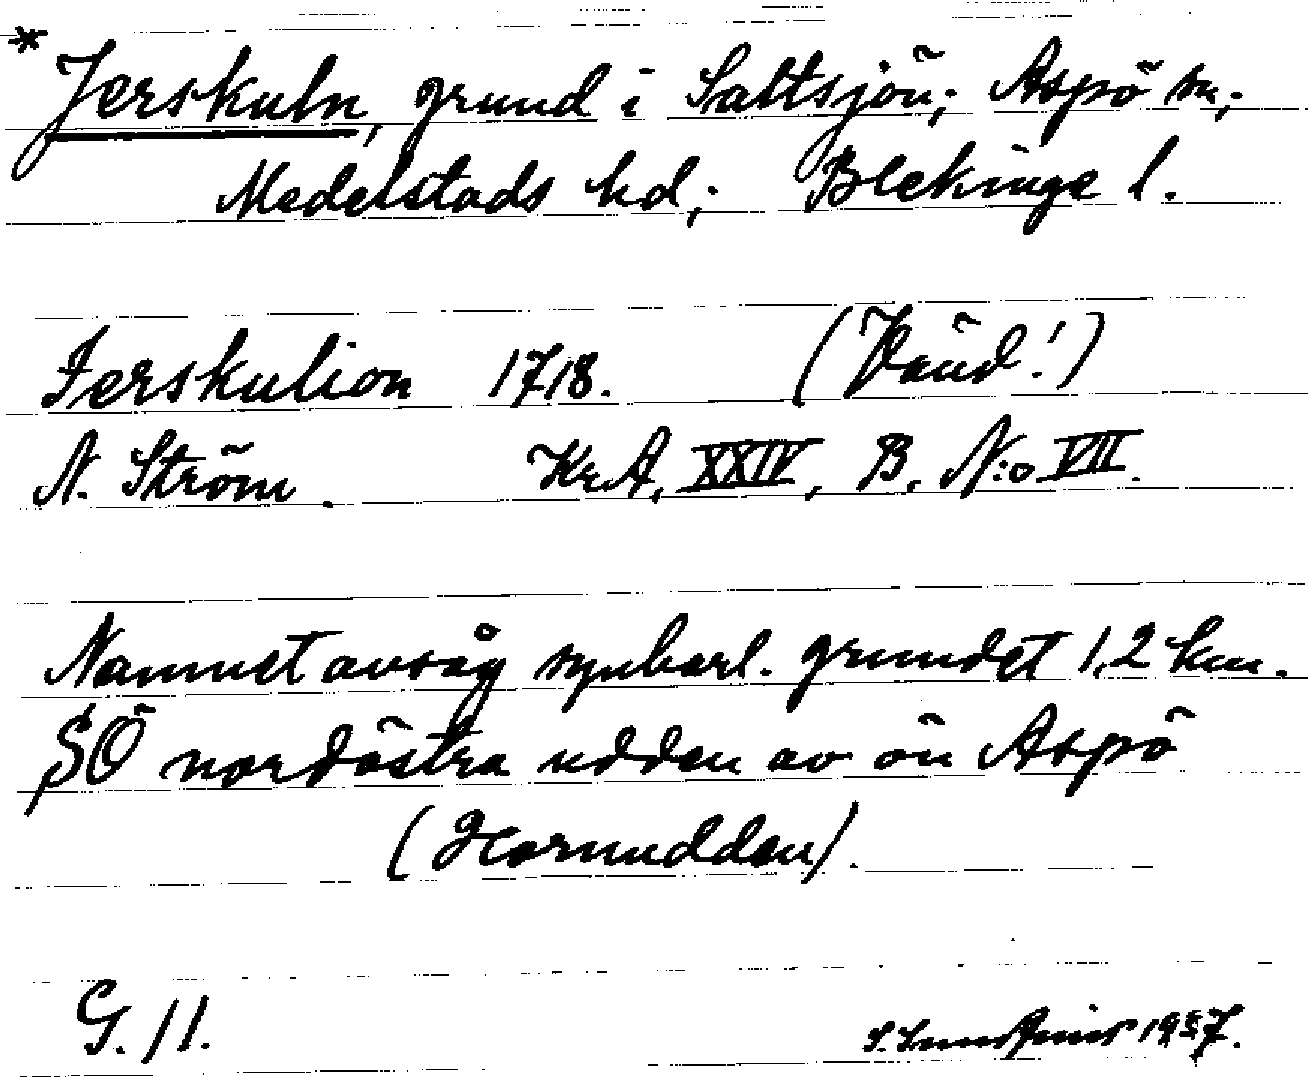 * Jerskuln, grund i Saltsjön; Aspö sn;
Medelstads hd; Blekinge l.
Jerskulion 1718. (Vänd!)
N. Ström. Kr.A, XXIV, B, N:o VII.
Namnet avsåg synbarl. grundet 1,2 km.
SÖ nordöstra udden av ön Aspö
(Hornudden).
G. 11.
1937.